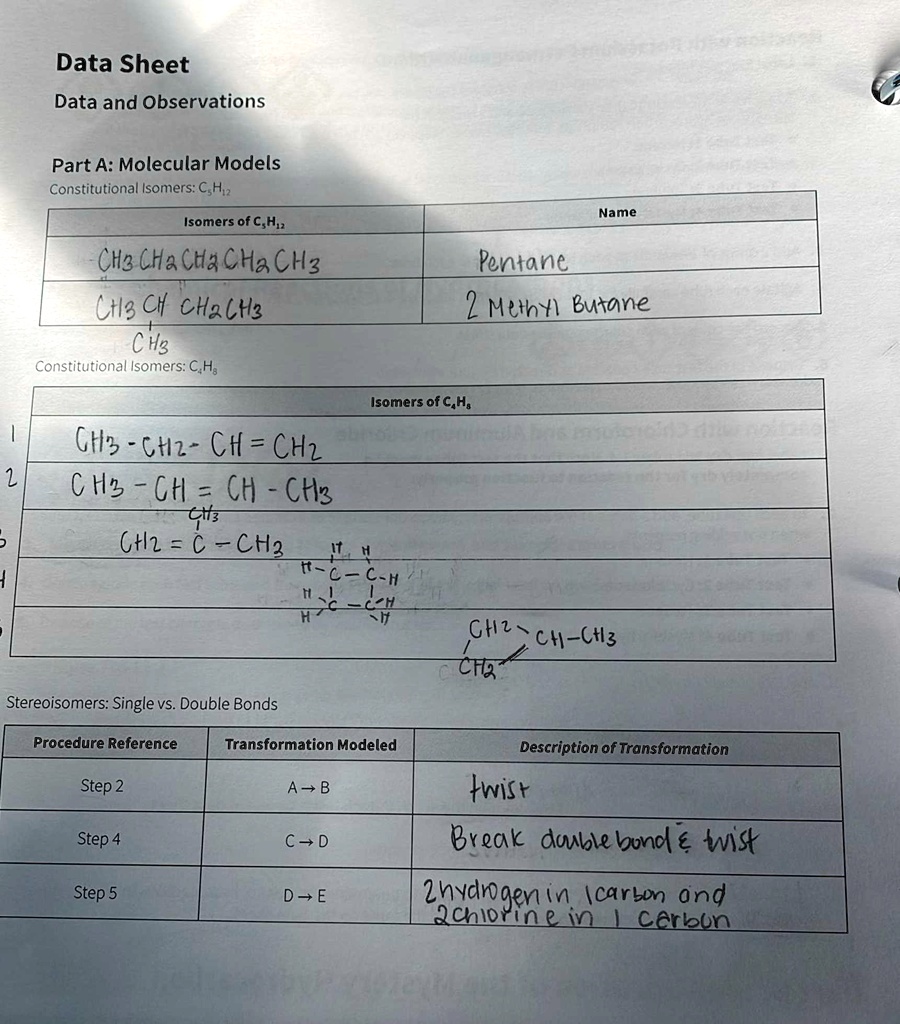 Data Sheet
Data and Observations
Part A: Molecular Models
Constitutional Isomers: C₅H₁₂
Isomers of C₅H₁₂ Name
CH3 CH2 CH2 CH2 CH3 Pentane
CH3 CH CH2 CH3 2 Methyl Butane
CH3
Constitutional Isomers: C₄H₈
Isomers of C₄H₈
1 CH3 - CH2 - CH = CH2
2 CH3 - CH = CH - CH3
CH3
CH2 = C - CH3
H H
H - C - C - H
H C - C H
H H
CH2 CH - CH3
CH2
Stereoisomers: Single vs. Double Bonds
Procedure Reference Transformation Modeled Description of Transformation
Step 2 A → B twist
Step 4 C → D Break double bond & twist
Step 5 D → E 2 hydrogen in 1 carbon and
2 chlorine in 1 cerbon